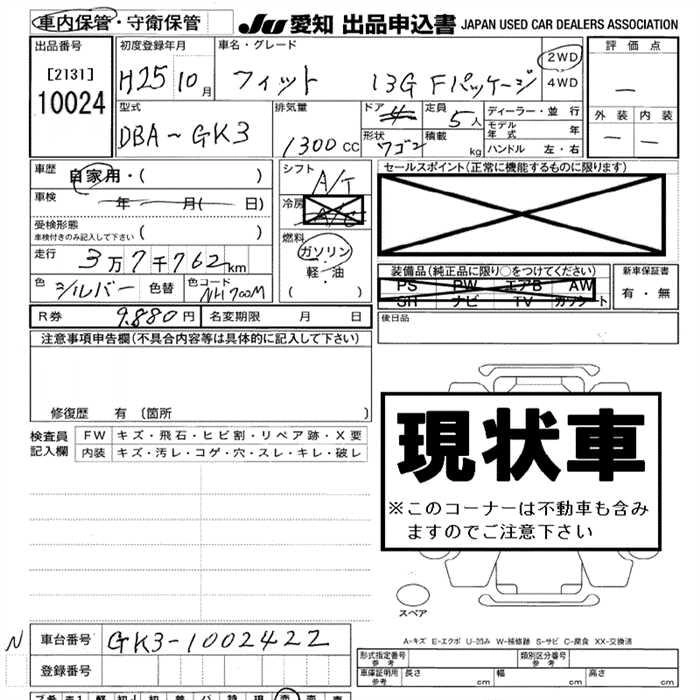 車内保管・守衛保管
JU 愛知 出品申込書 JAPAN USED CAR DEALERS ASSOCIATION
出品番号
[2131]
10024
初度登録年月
H25 10月
車名・グレード
フィット 13G Fパッケージ
2WD
4WD
評価点
—
外装 内装
— —
型式
DBA-GK3
排気量
1300CC
ドア
形状
ワゴン
定員
5人
積載
kg
ディーラー・並行
モデル年式 年
ハンドル 左・右
車歴
自家用・( )
車検
年 月( 日)
受検形態
車検付きのみ記入して下さい ( )
走行
3万7千762km
色
シルバー
色替
色コード
NH700M
シフト
A/T
冷房
A/C
燃料
ガソリン
軽・油
( )
セールスポイント(正常に機能するものに限ります)
装備品(純正品に限り○をつけてください)
PS PW エアB AW
SH ナビ TV カワシート
新車保証書
有・無
R券 9.880円
名変期限 月 日
後日品
注意事項申告欄(不具合内容等は具体的に記入して下さい)
修復歴 有 (箇所 )
検査員
記入欄
FW キズ・飛石・ヒビ割・リペア跡・X要
内装 キズ・汚レ・コゲ・穴・スレ・キレ・破レ
現状車
※このコーナーは不動車も含み
ますのでご注意下さい
スペア
A-キズ E-エクボ U-凹み W-補修跡 S-サビ C-腐食 XX-交換済
N
車台番号 GK3-1002422
登録番号
形式指定番号
参考
類別区分番号
参考
車庫証明用
参考
長さ cm
幅 cm
高さ cm